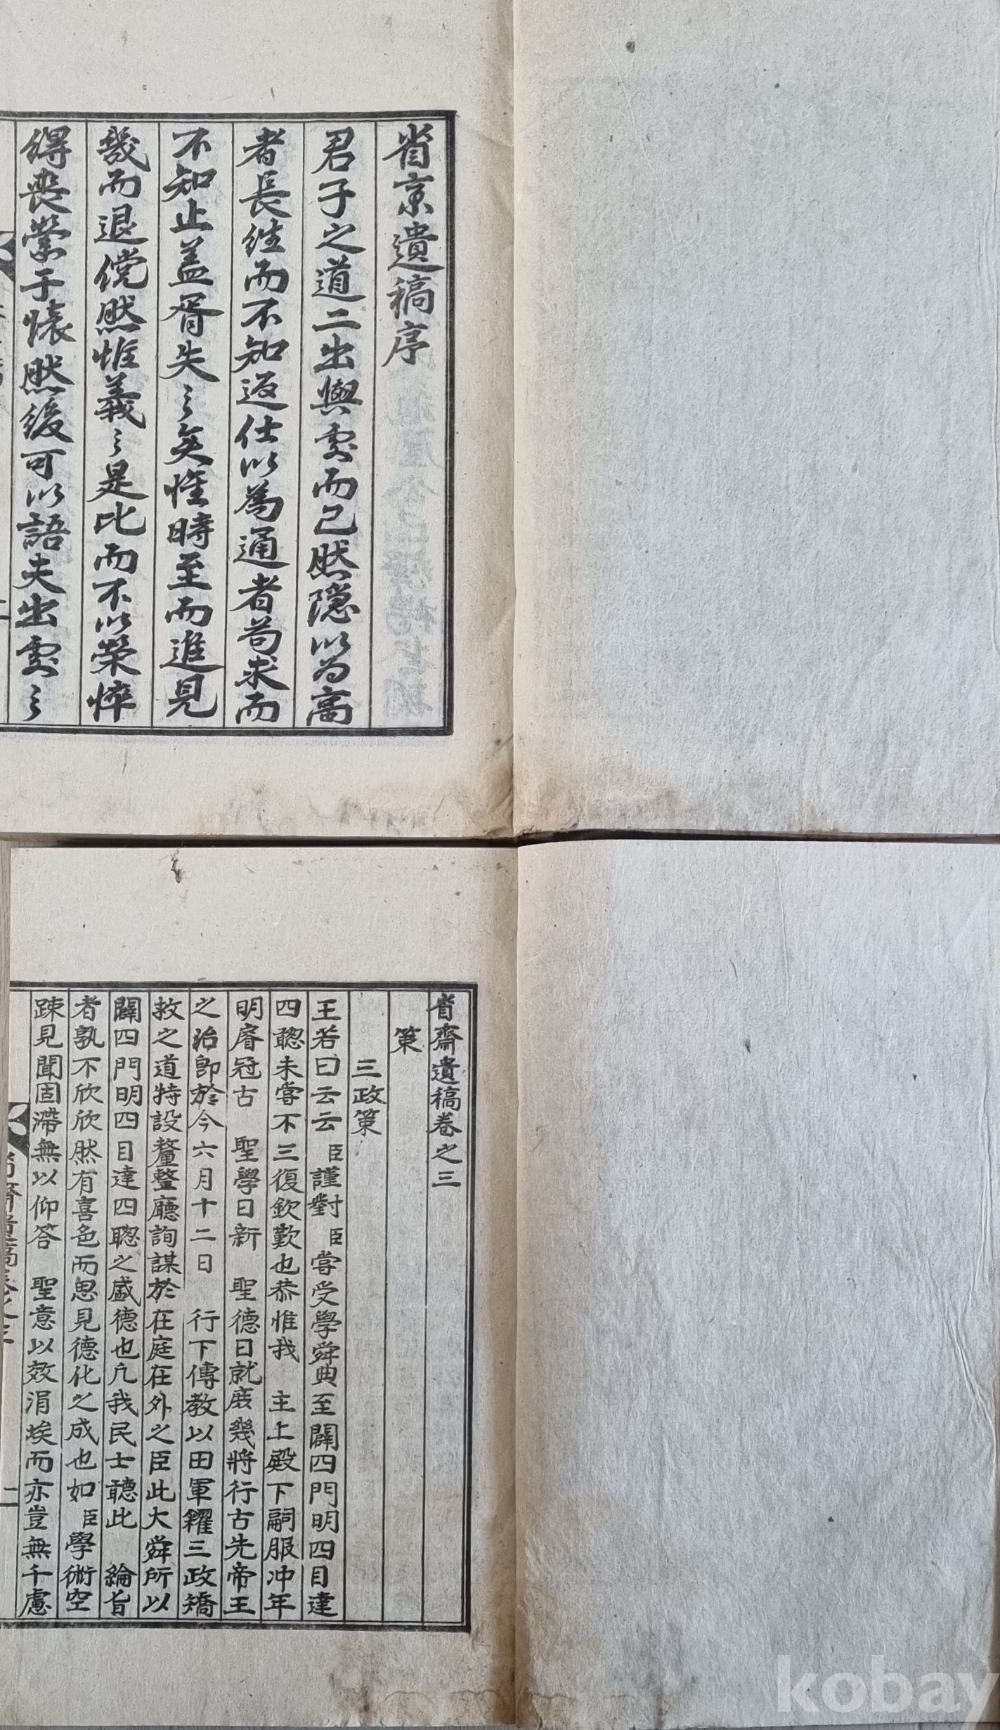 省齋遺稿序
君子之道二出與處而已然隱以為高
者長往而不知返仕以為通者苟求而
不知止盖胥失之矣惟時至而進見
幾而退儻然惟義之是比而不以榮悴
得喪縈于懷然後可以語夫出處之
省齋遺稿卷之三
策
三政策
王若曰云云 臣謹對 臣嘗受學舜典至闢四門明四目達
四聰未嘗不三復欽歎也恭惟我 主上殿下嗣服冲年
明睿冠古 聖學日新 聖德日就庶幾將行古先帝王
之治卽於今六月十二日 行下傳教以田軍糴三政矯
救之道特設釐整廳詢謀於在庭在外之臣此大舜所以
闢四門明四目達四聰之盛德也凡我民士聽此 綸旨
者孰不欣欣然有喜色而思見德化之成也如 臣學術空
踈見聞固滯無以仰答 聖意以效涓埃而亦豈無千慮
省齋遺稿卷之三
一
kobay